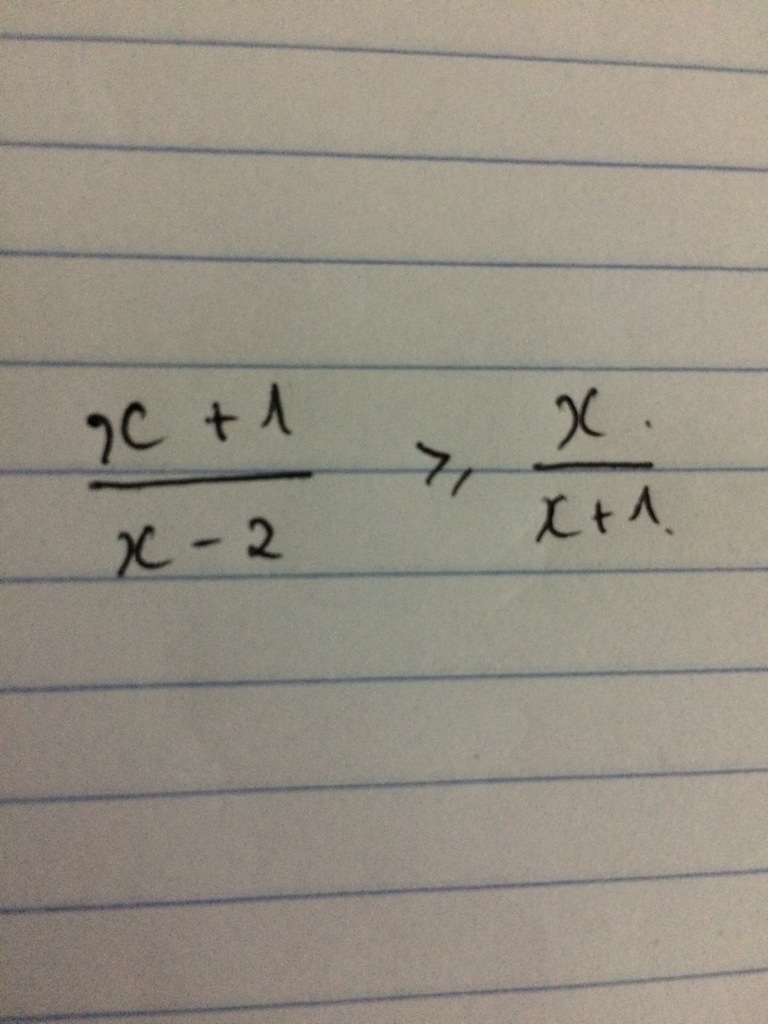 x + 1 / x - 2 ⩾ x / x + 1